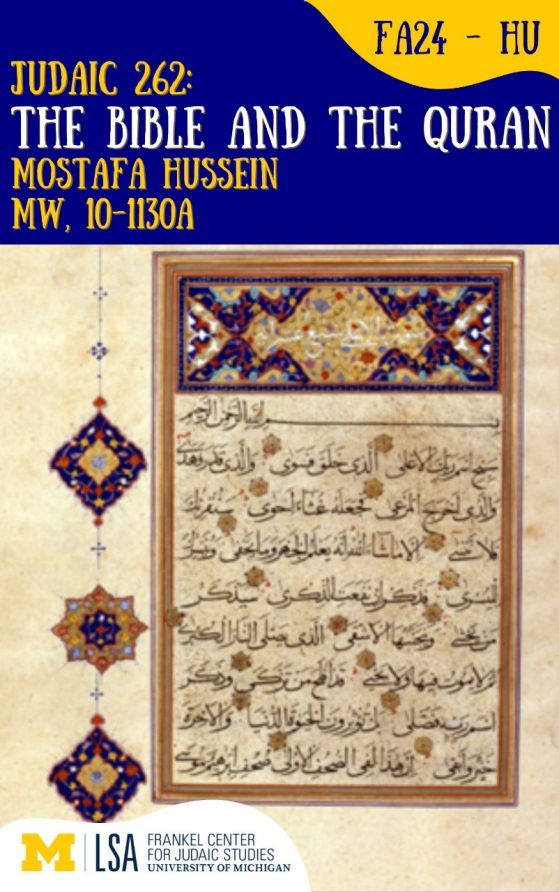 FA24 - HU
JUDAIC 262:
THE BIBLE AND THE QURAN
MOSTAFA HUSSEIN
MW, 10-1130A
بسم الله الرحمن الرحيم
سبح اسم ربك الاعلى الذى خلق فسوى والذى قدر فهدى
والذى اخرج المرعى فجعله غثاء احوى سنقرئك
فلا تنسى الا ما شاء الله انه يعلم الجهر وما يخفى ونيسرك
لليسرى فذكر ان نفعت الذكرى سيذكر
من يخشى ويتجنبها الاشقى الذى يصلى النار الكبرى
ثم لا يموت فيها ولا يحيى قد افلح من تزكى وذكر
اسم ربه فصلى بل تؤثرون الحيوة الدنيا والاخرة
خير وابقى ان هذا لفى الصحف الاولى صحف ابرهيم وموسى
M LSA FRANKEL CENTER
FOR JUDAIC STUDIES
UNIVERSITY OF MICHIGAN